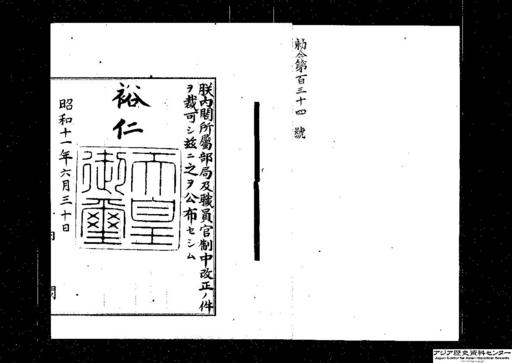 勅令第百三十四號
朕内閣所屬部局及職員官制中改正ノ件
ヲ裁可シ茲ニ之ヲ公布セシム
裕仁
天皇
御璽
昭和十一年六月三十日
内閣
アジア歴史資料センター
Japan Center for Asian Historical Records